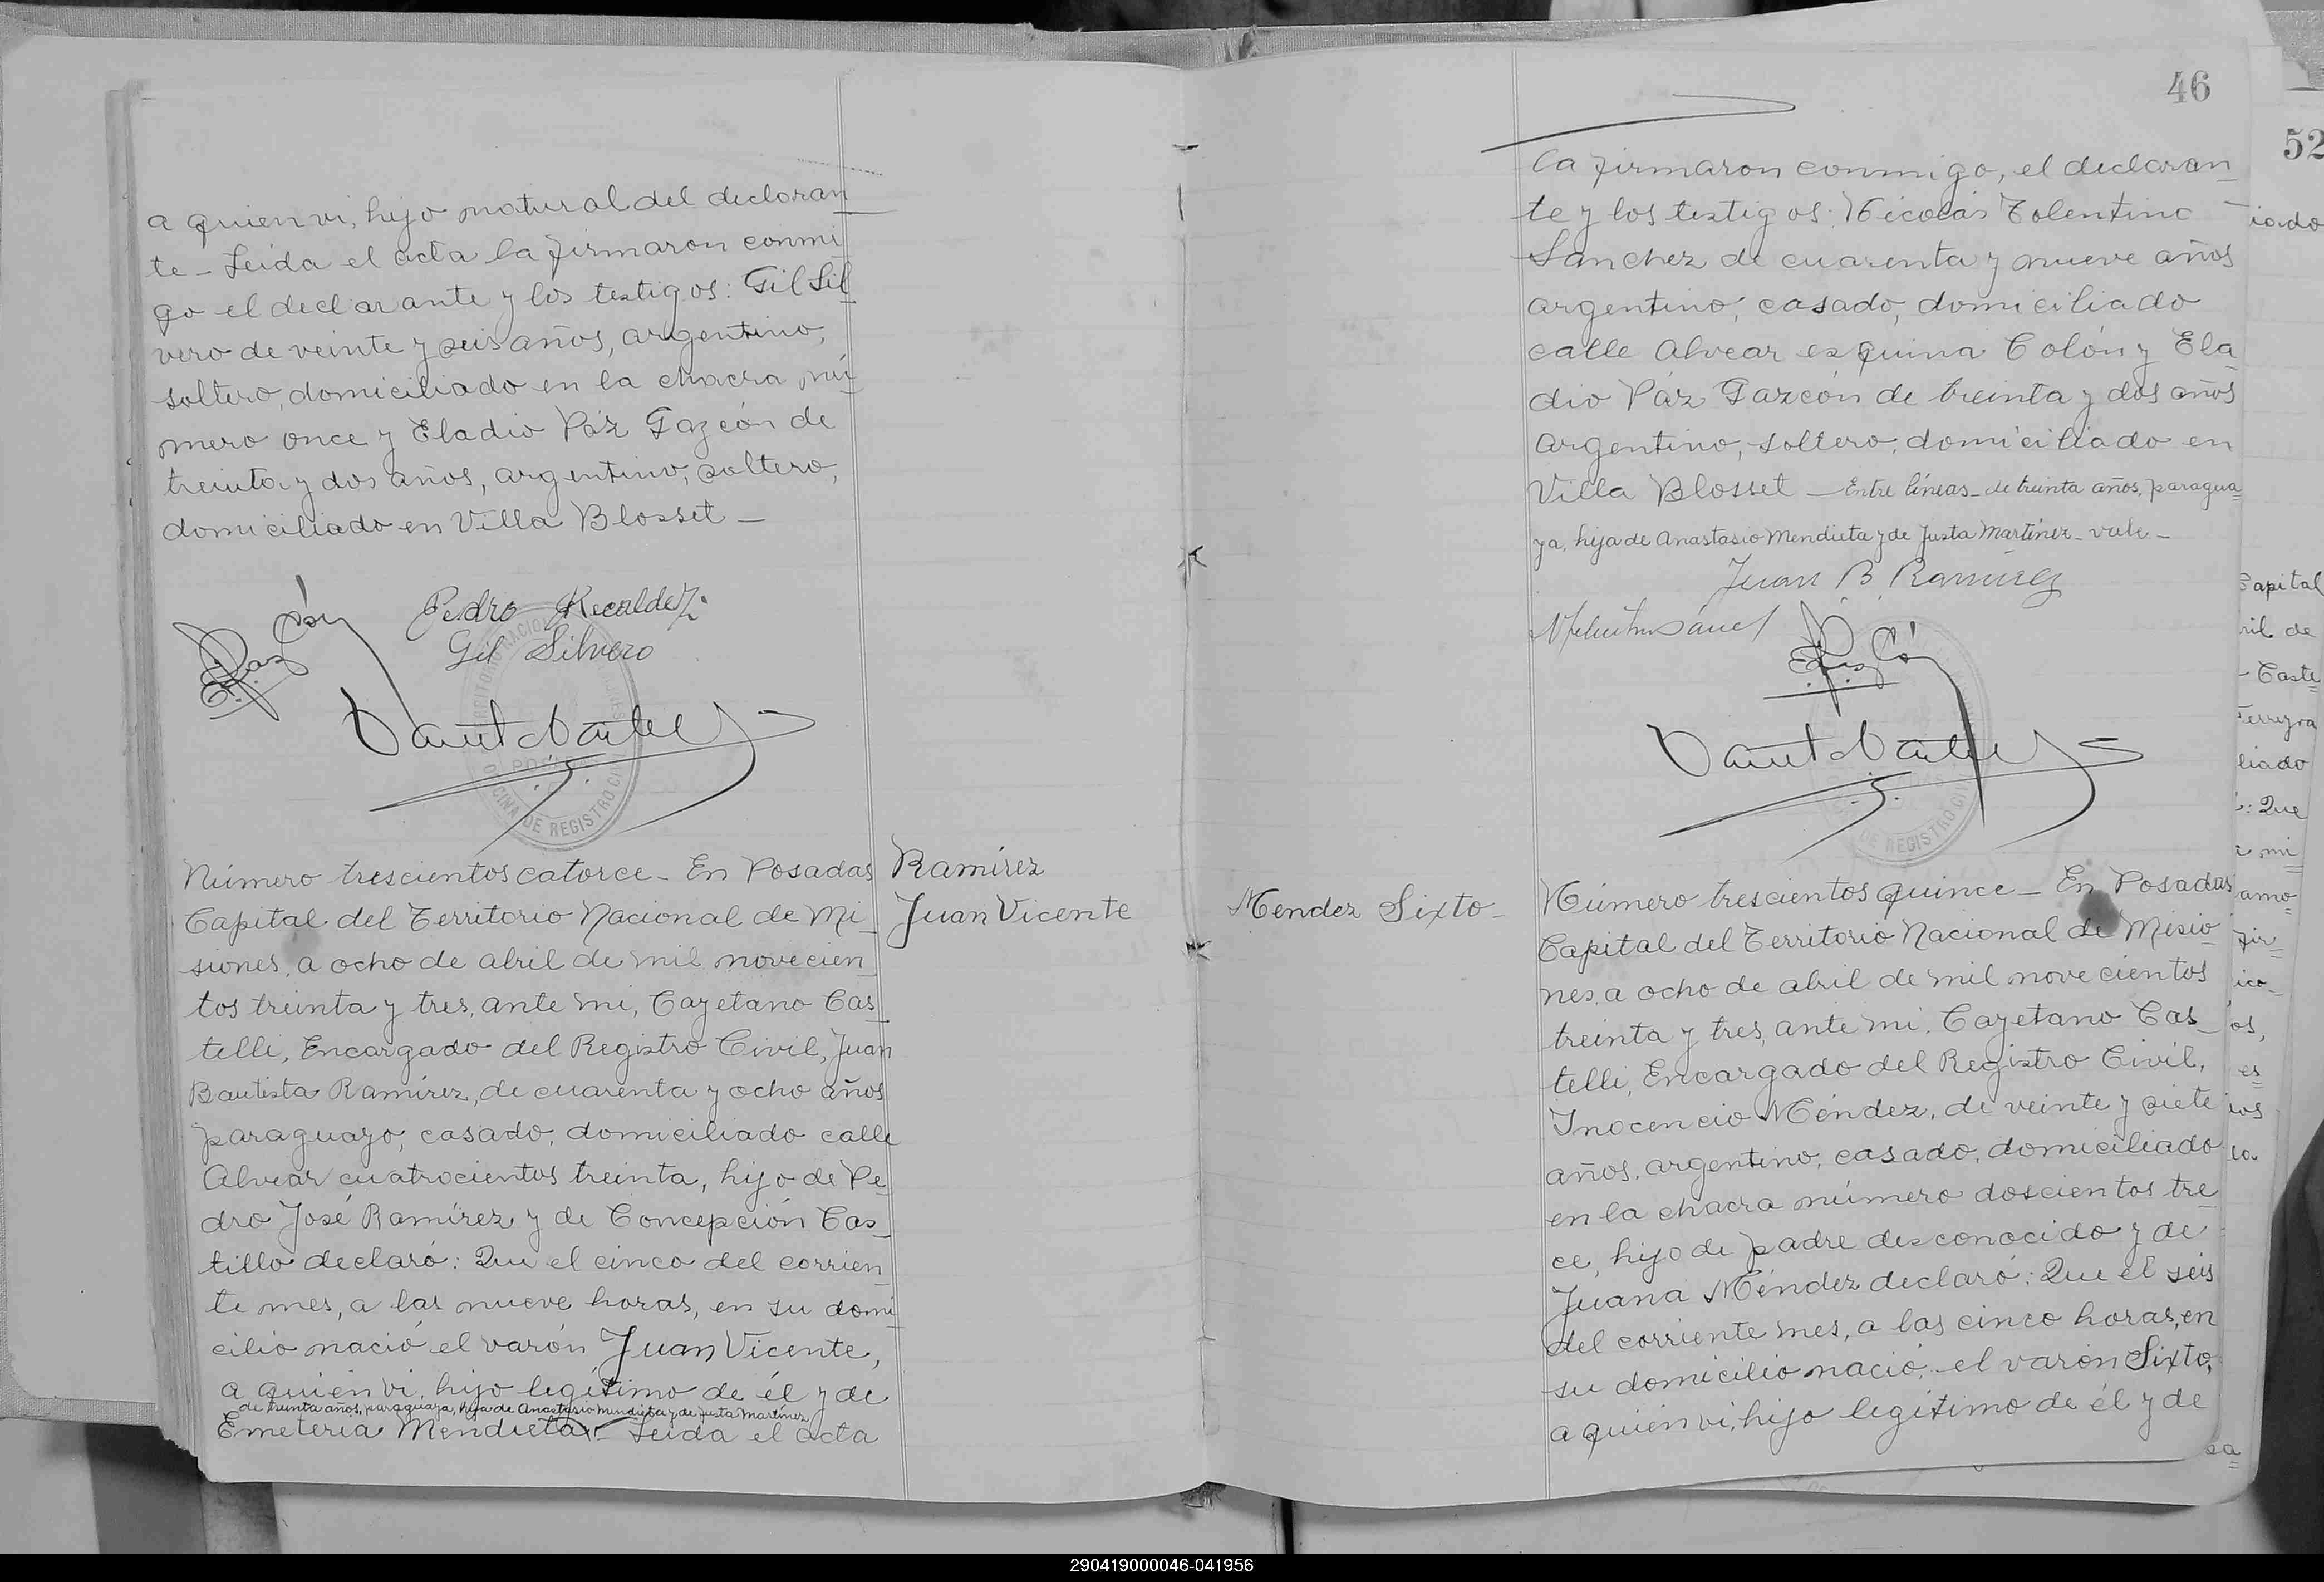 a quien vi, hijo natural del declaran
te - Leida el acta la firmaron conmi
go el declarante y los testigos: Gil Sil
vero de veinte y seis años, argentino,
soltero, domiciliado en la chacra nú
mero once y Eladio Páz Gazcón de
treinta y dos años, argentino, soltero,
domiciliado en Villa Blosset -
Pedro Recalde
Gil Silvero
Número trescientos catorce - En Posadas
Capital del Territorio Nacional de Mi_
siones, a ocho de abril de mil novecien_
tos treinta y tres, ante mi, Cayetano Cas_
telli, Encargado del Registro Civil, Juan
Bautista Ramírez, de cuarenta y ocho años
paraguayo, casado, domiciliado calle
Alvear cuatrocientos treinta, hijo de Pe_
dro José Ramírez y de Concepción Cas_
tillo declaró: Que el cinco del corrien_
te mes, a las nueve horas, en su domi_
cilio nació el varón Juan Vicente,
a quien vi, hijo legítimo de él y de
de treinta años, paraguaya, hija de Anastasio Mendieta y de Justa Martínez
Emeteria Mendieta - Leida el acta
Ramírez
Juan Vicente
46
la firmaron conmigo, el declaran_
te y los testigos: Nicolás Tolentino
Sanchez de cuarenta y nueve años
argentino, casado, domiciliado
calle Alvear esquina Colón y Ela_
dio Páz Gazcón de treinta y dos años
argentino, soltero, domiciliado en
Villa Blosset - Entre líneas - de treinta años, paragua_
ya, hija de Anastasio Mendieta y de Justa Martínez - vale -
Juan B. Ramírez
Méndez Sixto -
Número trescientos quince - En Posadas
Capital del Territorio Nacional de Misio_
nes, a ocho de abril de mil novecientos
treinta y tres, ante mi, Cayetano Cas_
telli, Encargado del Registro Civil,
Inocencio Méndez, de veinte y siete
años, argentino, casado, domiciliado
en la chacra número doscientos tre_
ce, hijo de padre desconocido y de
Juana Méndez declaró: Que el seis
del corriente mes, a las cinco horas, en
su domicilio nació el varón Sixto,
a quien vi, hijo legítimo de él y de
52
iado
Capital
ril de
- Caste
Ferreyra
liado
: Que
mi
amo
fir
ico_
os,
es
ios
290419000046-041956